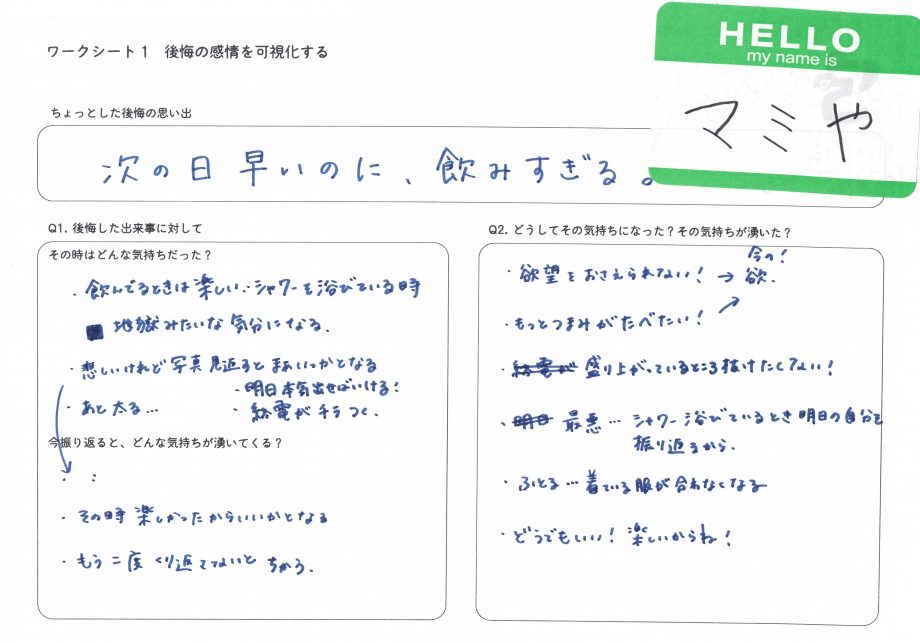 ワークシート1 後悔の感情を可視化する
HELLO
my name is
マミや
ちょっとした後悔の思い出
次の日早いのに、飲みすぎる。
Q1. 後悔した出来事に対して
その時はどんな気持ちだった?
・飲んでるときは楽しい‥シャワーを浴びている時
地獄みたいな気分になる。
・悲しいけれど写真見返すとまあいっかとなる
・明日本気出せばいける!
・あと太る…
・終電がチラつく。
今振り返ると、どんな気持ちが湧いてくる?
・その時楽しかったからいいかとなる
・もう二度くり返さないと ちかう。
Q2. どうしてその気持ちになった?その気持ちが湧いた?
・欲望をおさえられない!→今の!欲.
・もっとつまみがたべたい!
・終電が 盛り上がっているところ抜けたくてない!
・明日 最悪… シャワー浴びているとき明日の自分を
振り返るから.
・ふとる…着ている服が合わなくなる
・どうでもいい!楽しいからね!